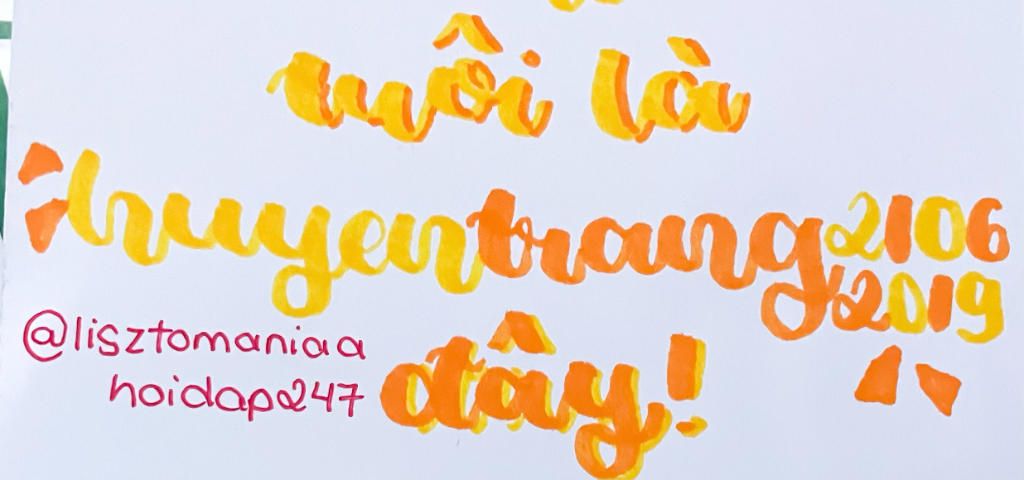 nuôi là
huyentrang2106
2019
@lisztomaniaa
hoidap247
đây!